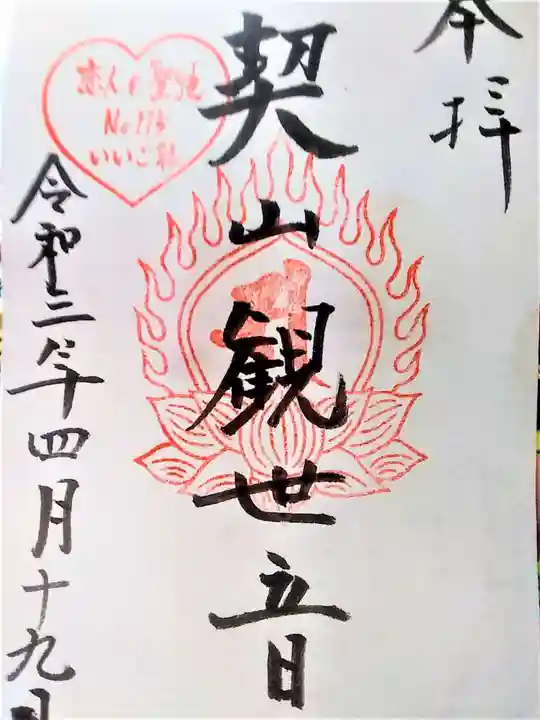 奉拝
契山観世音
令和三年四月十九日
恋人の聖地
No.115